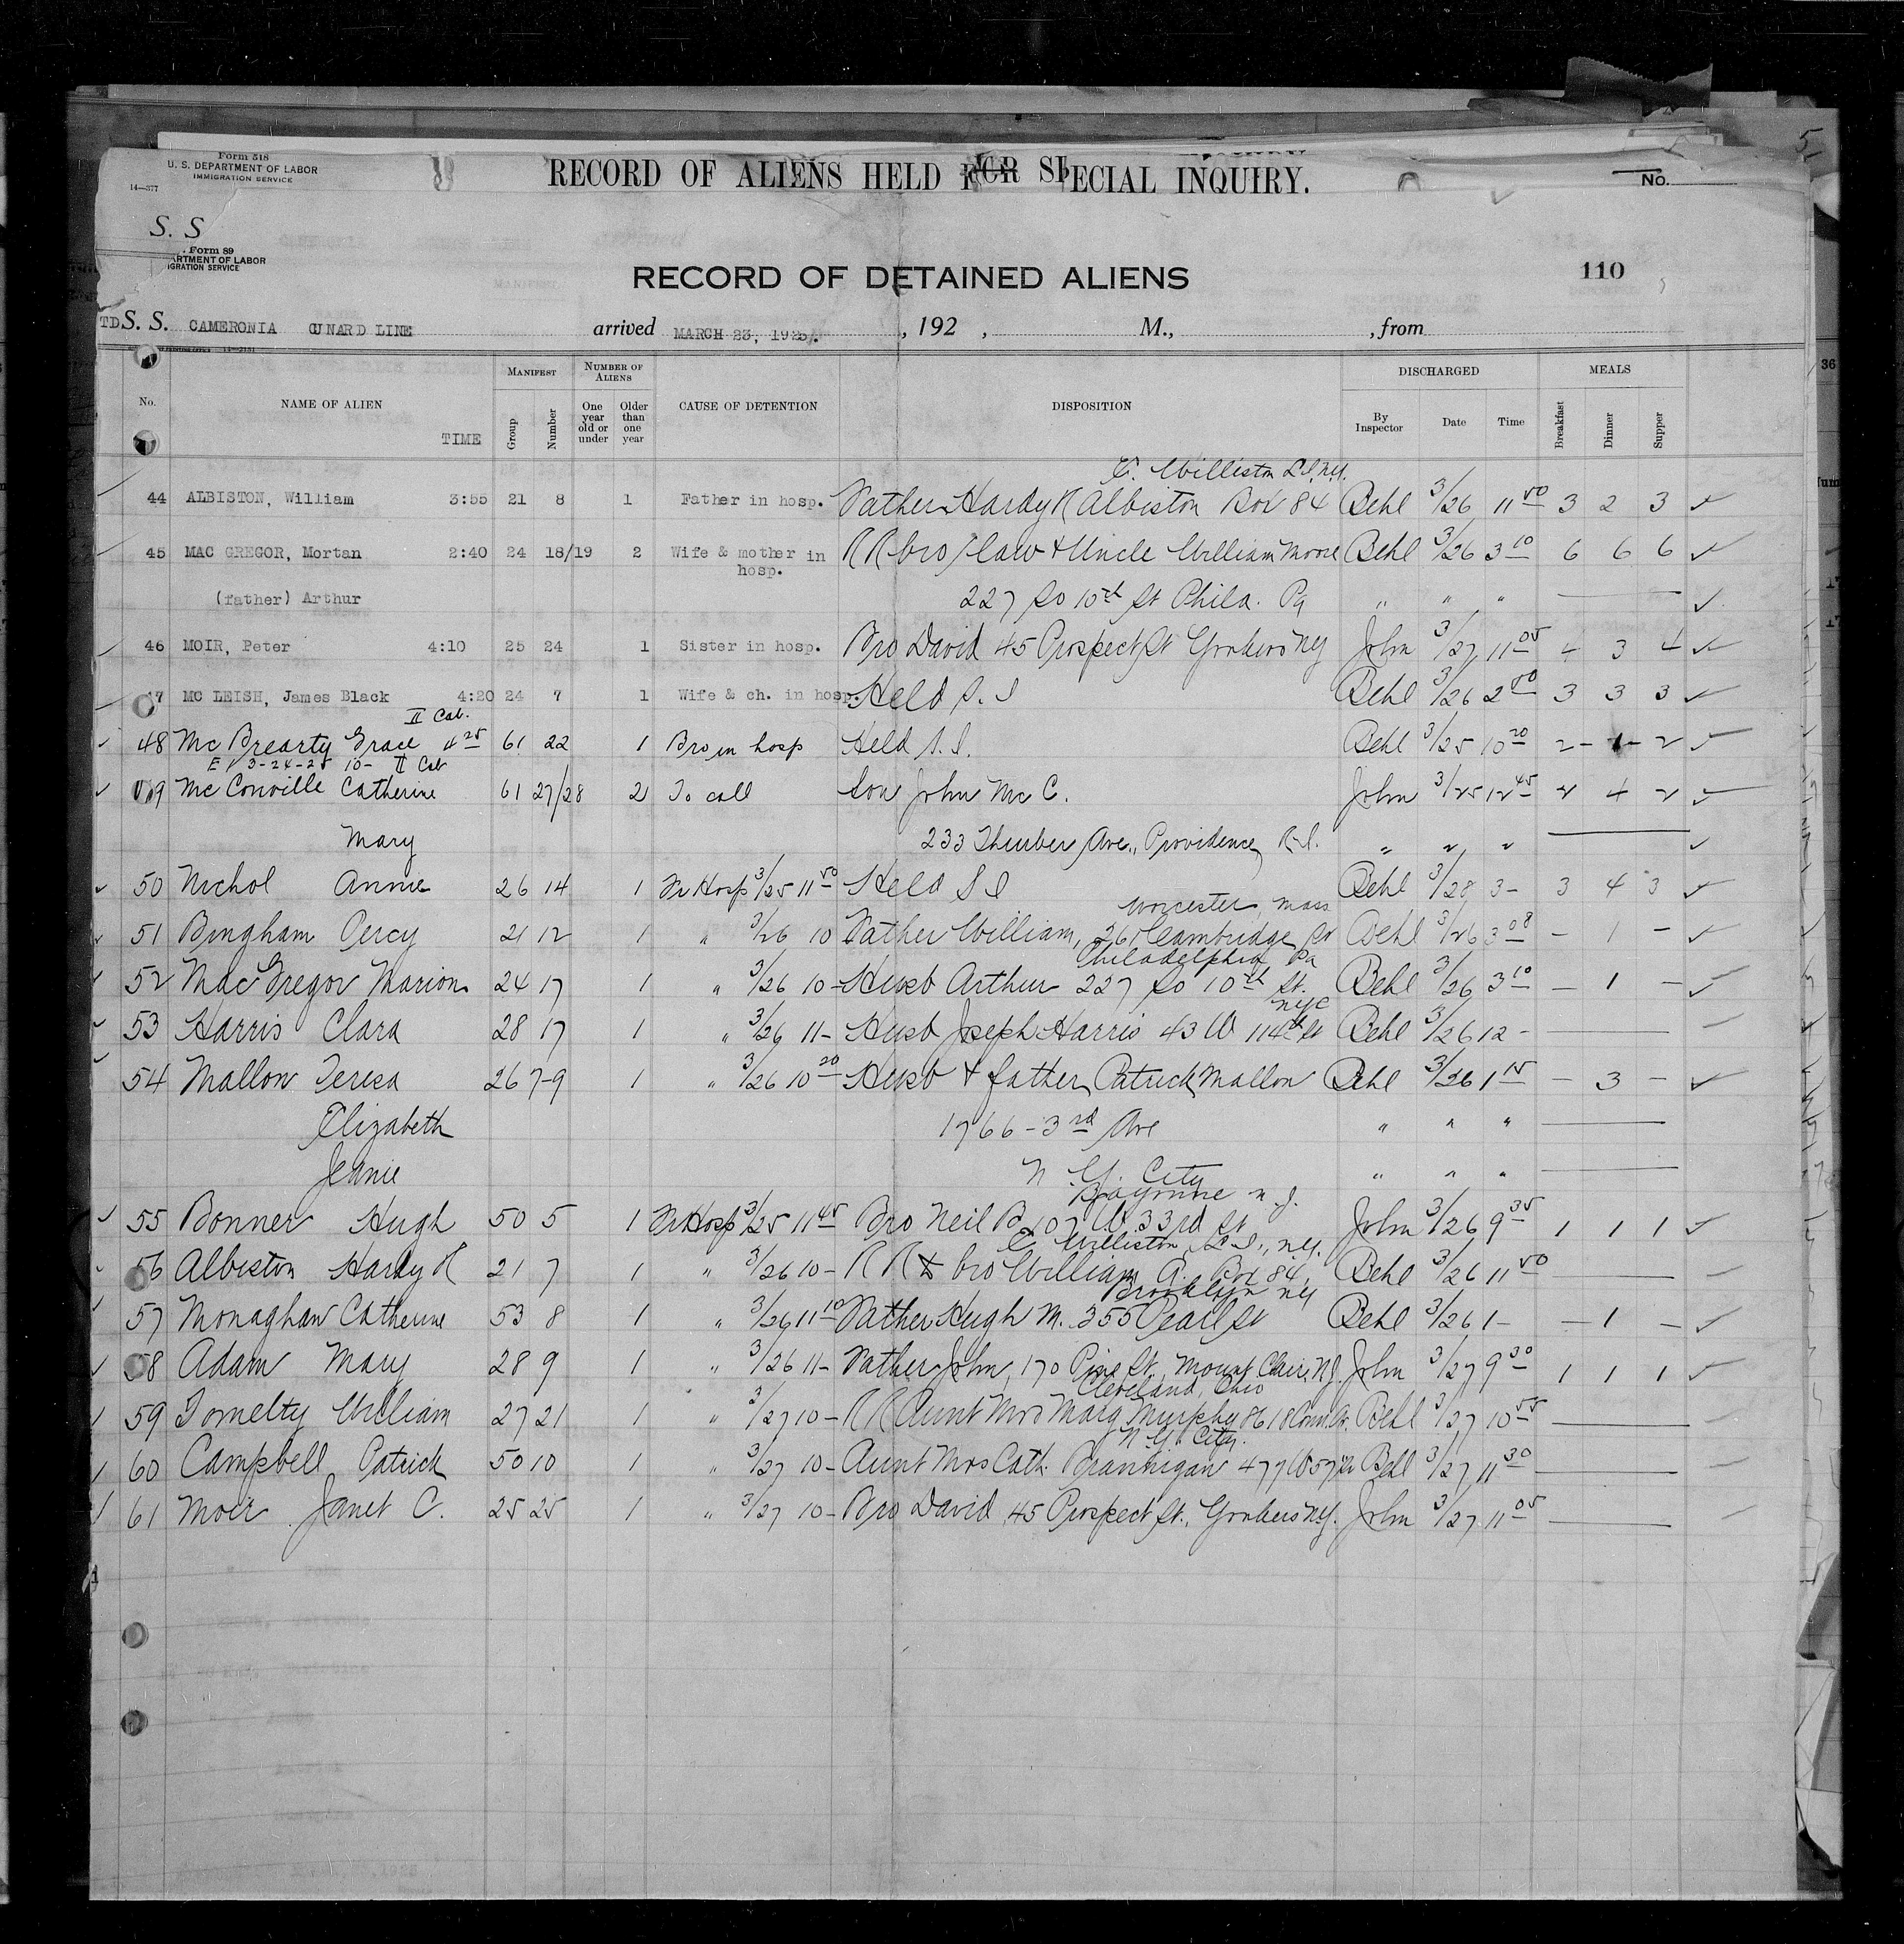 Form 518
U. S. DEPARTMENT OF LABOR
IMMIGRATION SERVICE
14—377
RECORD OF ALIENS HELD FOR SPECIAL INQUIRY.
No.
S. S
Form 89
ARTMENT OF LABOR
IGRATION SERVICE
RECORD OF DETAINED ALIENS
110
TD S. S. CAMERONIA CUNARD LINE arrived MARCH 23, 1925. , 192 , M., , from
No. NAME OF ALIEN TIME MANIFEST Group Number NUMBER OF ALIENS One year old or under Older than one year CAUSE OF DETENTION DISPOSITION DISCHARGED By Inspector Date Time MEALS Breakfast Dinner Supper
E. Williston L.I., N.Y.
44 ALBISTON, William 3:55 21 8 1 Father in hosp. Father Hardy R Albiston Box 84 Behl 3/26 11 50 3 2 3 ✓
45 MAC GREGOR, Mortan 2:40 24 18/19 2 Wife & mother in hosp. R R bro/law & Uncle William Moore Behl 3/26 3 10 6 6 6 ✓
(father) Arthur 227 So 10th St Phila. Pa " " " ✓
46 MOIR, Peter 4:10 25 24 1 Sister in hosp. Bro David 45 Prospect St Yonkers NY John 3/27 11 05 4 3 4 ✓
47 MC LEISH, James Black 4:20 24 7 1 Wife & ch. in hosp. Held S. I Behl 3/26 2 50 3 3 3 ✓
II Cab.
48 Mc Brearty Grace 4 25 61 22 1 Bro in hosp Held S. I. Behl 3/25 10 20 2 - 1 - 2 ✓
3-24-25 10- II Cab
49 Mc Conville Catherine 61 27/28 2 To call Son John Mc C. John 3/25 12 45 2 4 2 ✓
Mary 233 Thurber Ave., Providence, R.I. " " " ✓
50 Nichol Annie 26 14 1 In Hosp 3/25 11 50 Held S I Behl 3/28 3- 3 4 3 ✓
Worcester, Mass
51 Bingham Percy 21 12 1 " 3/26 10 Father William, Cambridge St Behl 3/26 3 08 - 1 - ✓
Philadelphia Pa
52 MacGregor Marion 24 17 1 " 3/26 10- Husb Arthur 227 So 10th St. Behl 3/26 3 10 - 1 - ✓
NYC
53 Harris Clara 28 17 1 " 3/26 11- Husb Joseph Harris 43 W 114th St Behl 3/26 12 -
54 Mallon Teresa 26 7-9 1 " 3/26 10 20 Husb & father Patrick Mallon Behl 3/26 1 15 - 3 - ✓
Elizabeth 1766 - 3rd Ave " " "
Jeanie N. Y. City " " "
Bayonne N. J.
55 Bonner Hugh 50 5 1 In Hosp 3/25 11 45 Bro Neil B 107 W. 33rd St John 3/26 9 35 1 1 1 ✓
E Williston, L. I., N.Y.
56 Albiston Hardy R 21 7 1 " 3/26 10- R R & bro William A. Box 84, Behl 3/26 11 50
Brooklyn NY
57 Monaghan Catherine 53 8 1 " 3/26 11 10 Father Hugh M. 355 Pearl St Behl 3/26 1- - 1 - ✓
58 Adam Mary 28 9 1 " 3/26 11- Father John, 170 Pine St, Mount Clair, N.J. John 3/27 9 30 1 1 1 ✓
Cleveland, Ohio
59 Tomelty William 27 21 1 " 3/27 10- R R Aunt Mrs Marg Murphy Behl 3/27 10 55
N. Y. City.
60 Campbell Patrick 50 10 1 " 3/27 10- Aunt Mrs Cath. Brannigan 477 W 57 St Behl 3/27 11 30
61 Moir Janet C. 25 25 1 " 3/27 10- Bro David 45 Prospect St., Yonkers N.Y. John 3/27 11 05